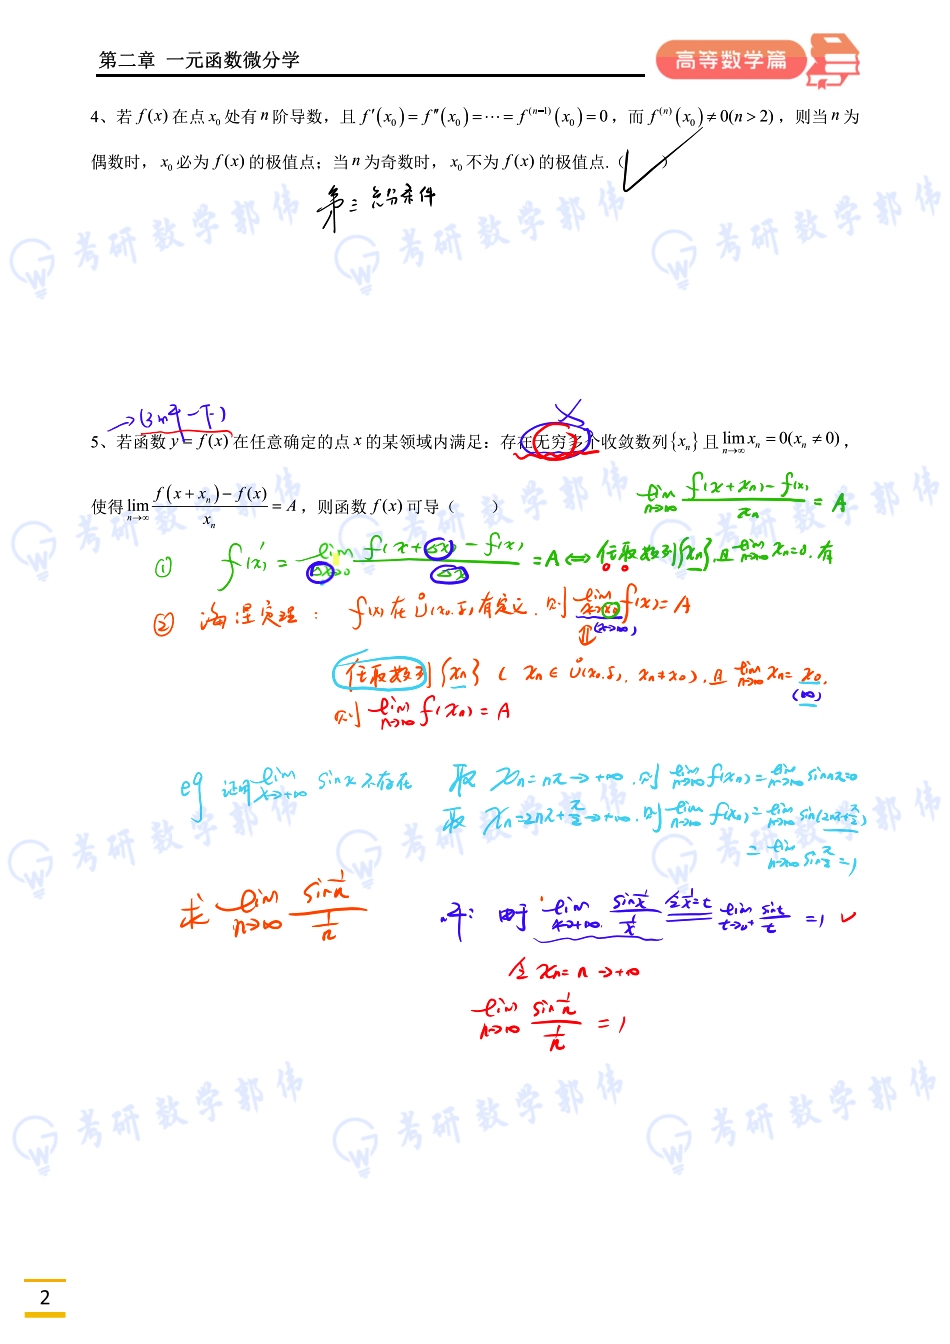 第二章 一元函数微分学
高等数学篇
4、若 f(x) 在点 x₀ 处有 n 阶导数，且 f′(x₀) = f″(x₀) = ⋯ = f⁽ⁿ⁻¹⁾(x₀) = 0，而 f⁽ⁿ⁾(x₀) ≠ 0(n > 2)，则当 n 为
偶数时，x₀ 必为 f(x) 的极值点；当 n 为奇数时，x₀ 不为 f(x) 的极值点.（ √ ）
第三充分条件
5、若函数 y = f(x) 在任意确定的点 x 的某领域内满足：存在无穷多个收敛数列{xₙ} 且 lim n→∞ xₙ = 0(xₙ ≠ 0)，
使得 lim n→∞ (f(x + xₙ) − f(x))/xₙ = A，则函数 f(x) 可导（ ）
lim n→∞ (f(x+xₙ) − f(x))/xₙ = A
① f′(x) = lim Δx→0 (f(x+Δx) − f(x))/Δx = A ⇔ 任取数列{xₙ}, 且 lim n→∞ xₙ=0. 有
② 海涅定理： f(x) 在 Ů(x₀.δ) 有定义. 则 lim x→x₀ f(x) = A
⇕ (x→∞)
任取数列{xₙ} ( xₙ ∈ Ů(x₀.δ), xₙ ≠ x₀ ), 且 lim n→∞ xₙ = x₀,
(∞)
则 lim n→∞ f(xₙ) = A
eg 证明 lim x→+∞ sinx 不存在 取 xₙ = nπ → +∞. 则 lim n→∞ f(xₙ) = lim n→∞ sin nπ=0
取 xₙ = 2nπ + π/2 → +∞. 则 lim n→∞ f(xₙ) = lim n→∞ sin(2nπ+π/2)
= lim n→∞ sin π/2 = 1
求 lim n→∞ (sin 1/n)/(1/n) 解: 由于 lim x→+∞ (sin 1/x)/(1/x) 令 1/x = t lim t→0⁺ sint/t = 1 ✓
令 xₙ = n → +∞
lim n→∞ (sin 1/n)/(1/n) = 1
考研数学郭伟
考研数学郭伟
考研数学郭伟
考研数学郭伟
考研数学郭伟
考研数学郭伟
考研数学郭伟
考研数学郭伟
考研数学郭伟
考研数学郭伟
考研数学郭伟
考研数学郭伟
2